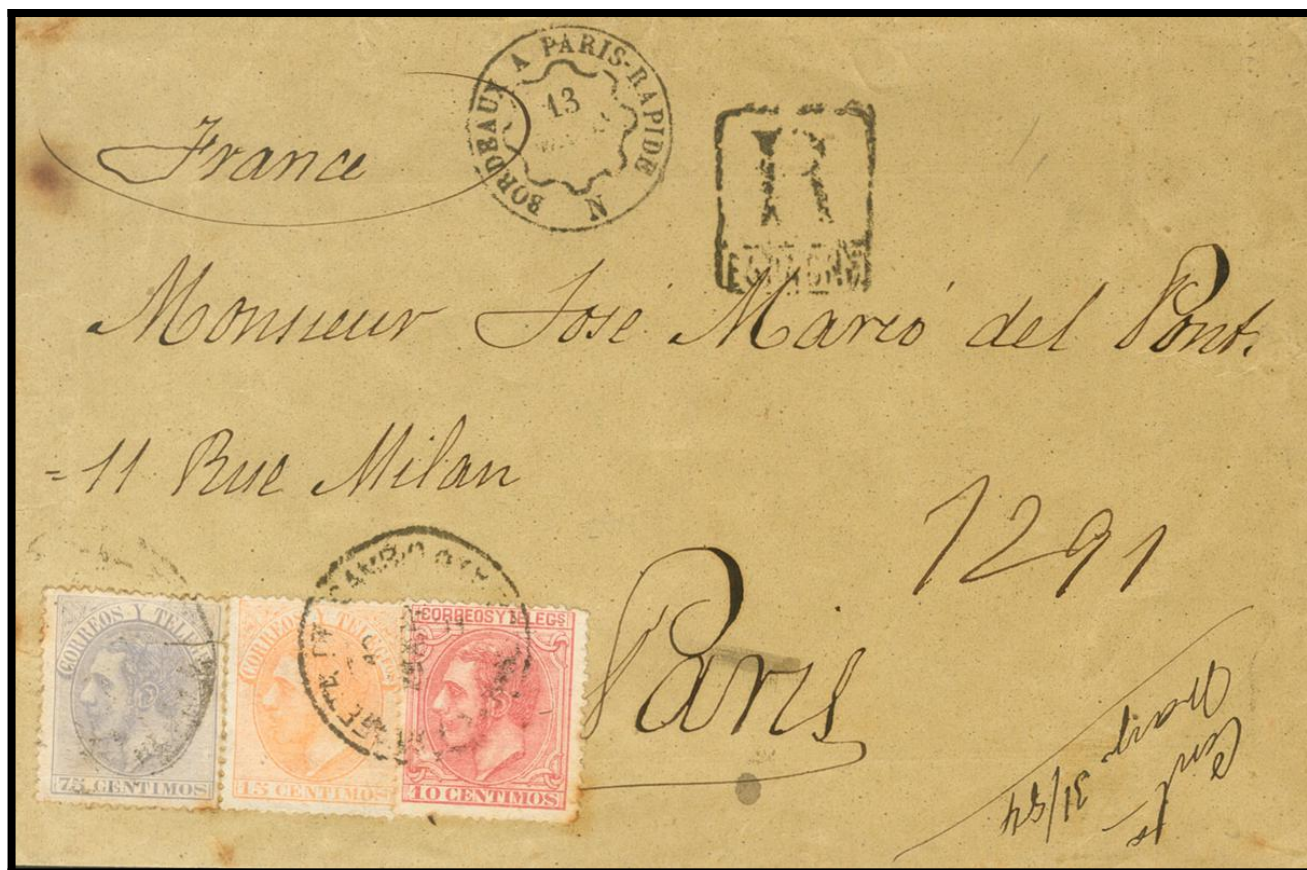 BORDEAUX A PARIS-RAPIDE N
13
France
R
Monsieur José Mario del Pont.
=11 Rue Milan
1291
Paris
CORREOS Y TELEG
75 CENTIMOS
CORREOS Y TELEGS
15 CENTIMOS
CORREOS Y TELEGS
10 CENTIMOS
CAMBIO
31/54